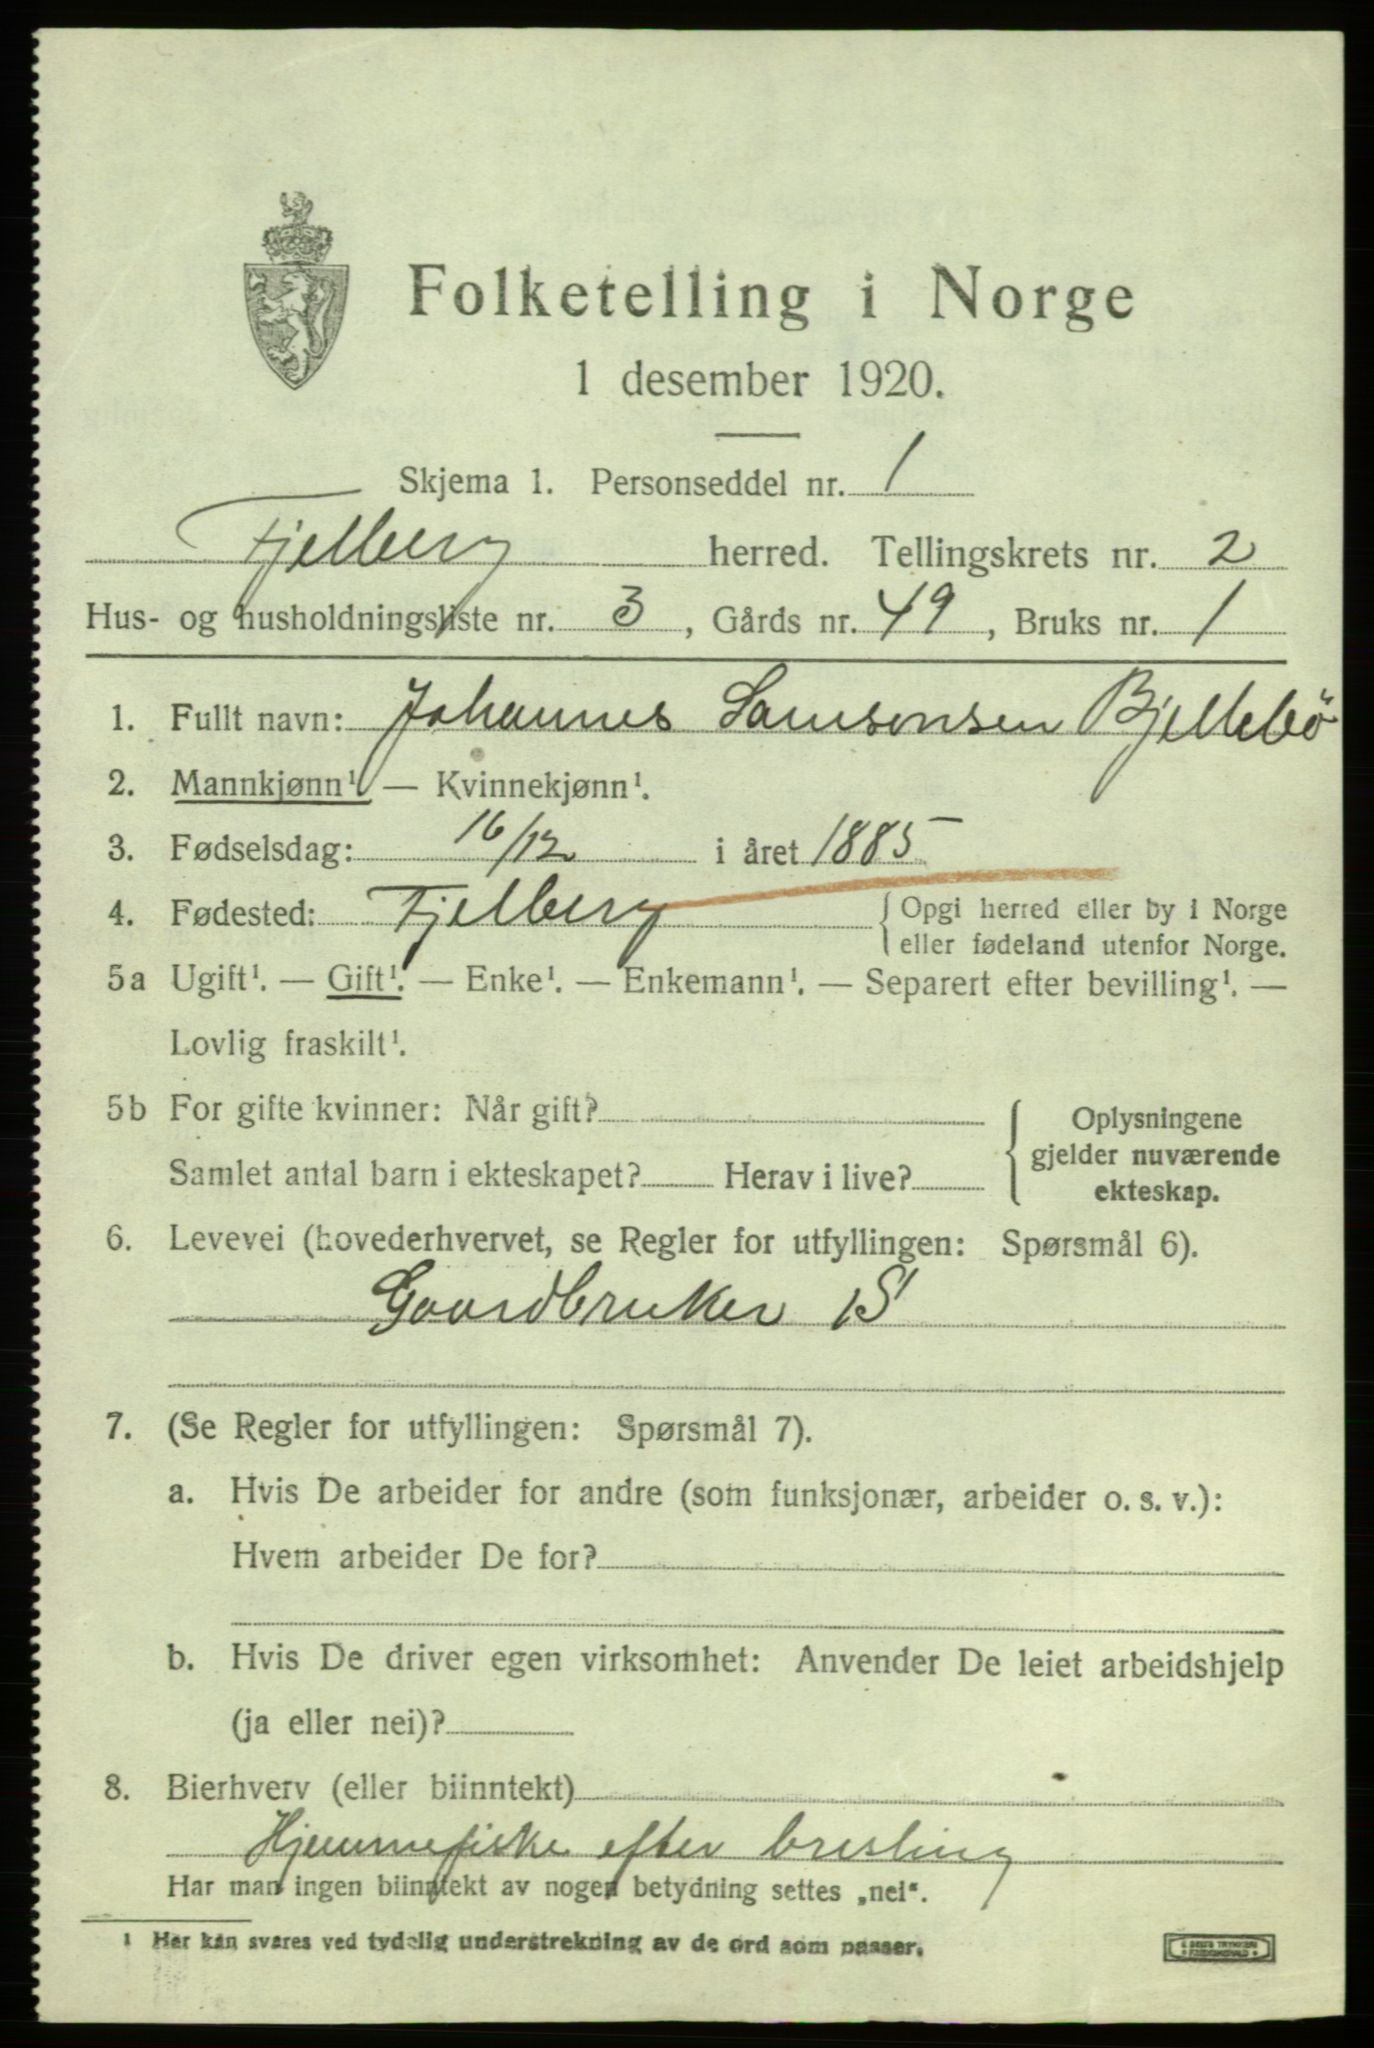 Folketelling i Norge
1 desember 1920.
Skjema 1. Personseddel nr. 1
Fjelberg herred. Tellingskrets nr. 2
Hus- og husholdningsliste nr. 3, Gårds nr. 49, Bruks nr. 1
1. Fullt navn: Johannes Samsonsen Bjellebö
2. Mannkjønn¹ — Kvinnekjønn¹.
3. Fødselsdag: 16/12 i året 1885
4. Fødested: Fjelberg { Opgi herred eller by i Norge
eller fødeland utenfor Norge.
5a Ugift¹. — Gift¹. — Enke¹. — Enkemann¹. — Separert efter bevilling¹. —
Lovlig fraskilt¹.
5b For gifte kvinner: Når gift?
Samlet antal barn i ekteskapet? Herav i live?
{ Oplysningene
gjelder nuværende
ekteskap.
6. Levevei (hovederhvervet, se Regler for utfyllingen: Spørsmål 6).
Gaardbruker S
7. (Se Regler for utfyllingen: Spørsmål 7).
a. Hvis De arbeider for andre (som funksjonær, arbeider o. s. v.):
Hvem arbeider De for?
b. Hvis De driver egen virksomhet: Anvender De leiet arbeidshjelp
(ja eller nei)?
8. Bierhverv (eller biinntekt)
Hjemmefiske efter brisling
Har man ingen biinntekt av nogen betydning settes „nei“.
1 Her kan svares ved tydelig understrekning av de ord som passer.